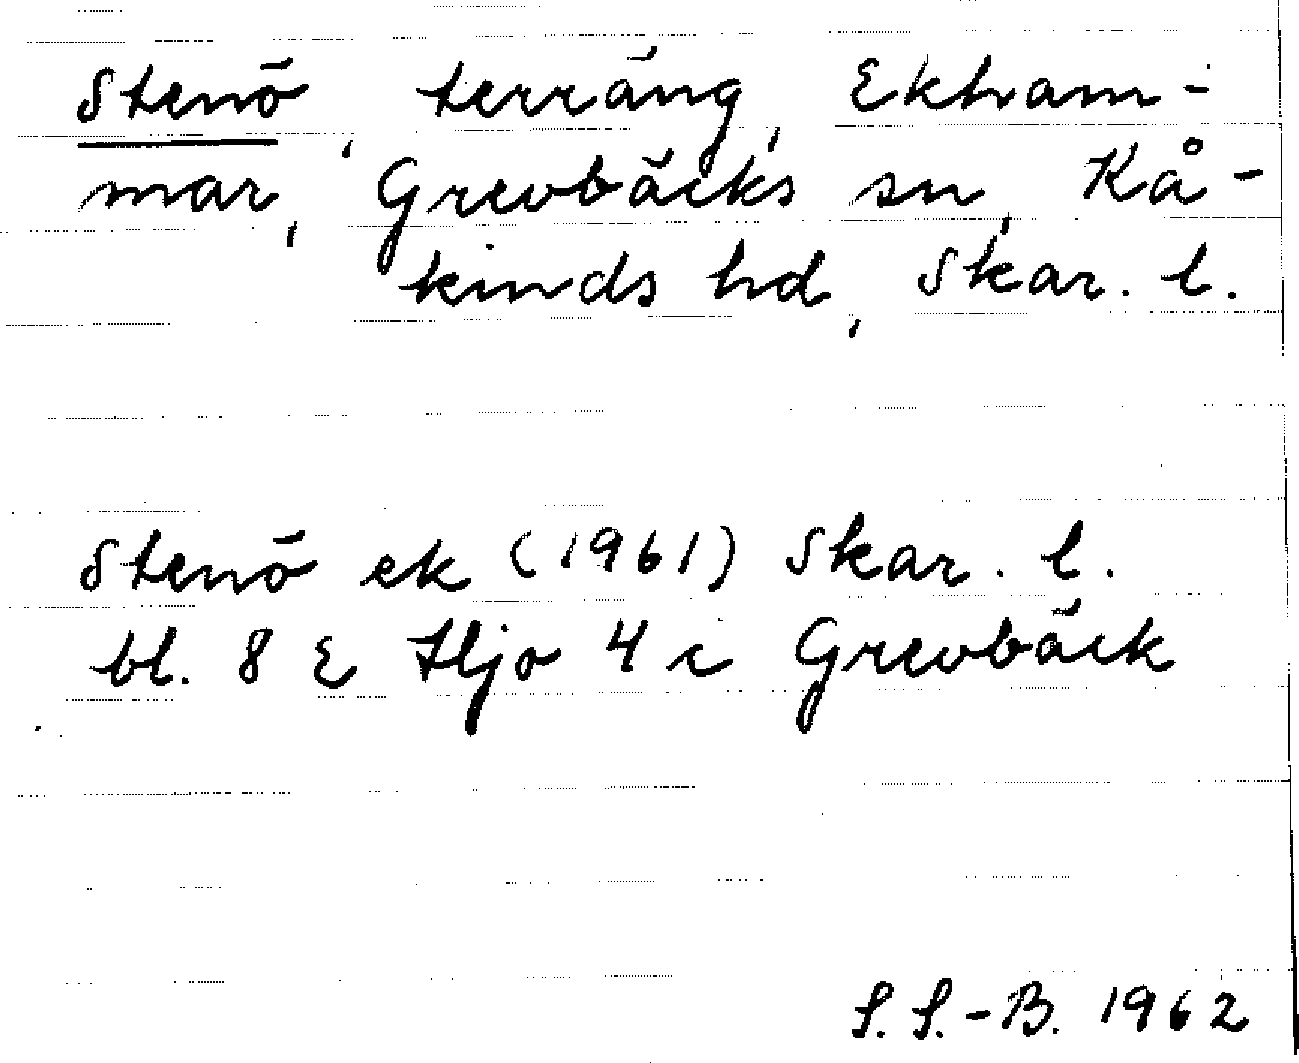 Stenö, terräng, Ekham-
mar, Grevbäcks sn, Kå-
kinds hd, Skar. l.
Stenö ek (1961) Skar. l.
bl. 8 E Hjo 4 i Grevbäck
S. S.-B. 1962